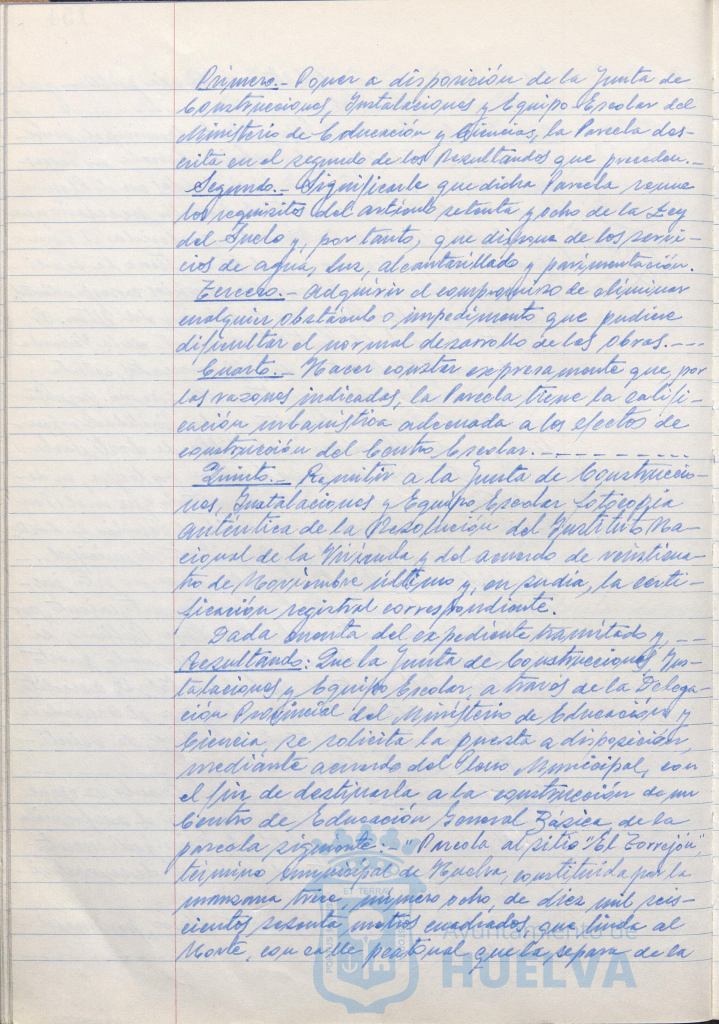 Primero.- Poner a disposición de la Junta de
Construcciones, Instalaciones y Equipo Escolar del
Ministerio de Educación y Ciencias, la Parcela des-
crita en el segundo de los Resultandos que preceden.-
Segundo.- Significarle que dicha Parcela reune
los requisitos del artículo setenta y ocho de la Ley
del Suelo y, por tanto, que dispone de los servi-
cios de agua, luz, alcantarillado y pavimentación.
Tercero.- Adquirir el compromiso de eliminar
cualquier obstáculo o impedimento que pudiera
dificultar el normal desarrollo de las obras.---
Cuarto.- Hacer constar expresamente que, por
las razones indicadas, la Parcela tiene la califi-
cación urbanística adecuada a los efectos de
construcción del Centro Escolar.---------
Quinto.- Remitir a la Junta de Construccio-
nes, Instalaciones y Equipo Escolar fotocopia
auténtica de la Resolución del Instituto Na-
cional de la Vivienda y del acuerdo de veinticua-
tro de Noviembre último y, en su día, la certi-
ficación registral correspondiente.
Dada cuenta del expediente tramitado y, --
Resultando: Que la Junta de Construcciones, Ins-
talaciones y Equipo Escolar, a través de la Delega-
ción Provincial del Ministerio de Educación y
Ciencia, se solicita la puesta a disposición,
mediante acuerdo del Pleno Municipal, con
el fin de destinarla a la construcción de un
Centro de Educación General Básica, de la
parcela siguiente:- "Parcela al sitio "El Torrejón",
término municipal de Huelva, constituida por la
manzana trece, número ocho, de diez mil seis-
cientos sesenta metros cuadrados, que linda al
Norte, con calle peatonal que la separa de la
Ayuntamiento de
HUELVA